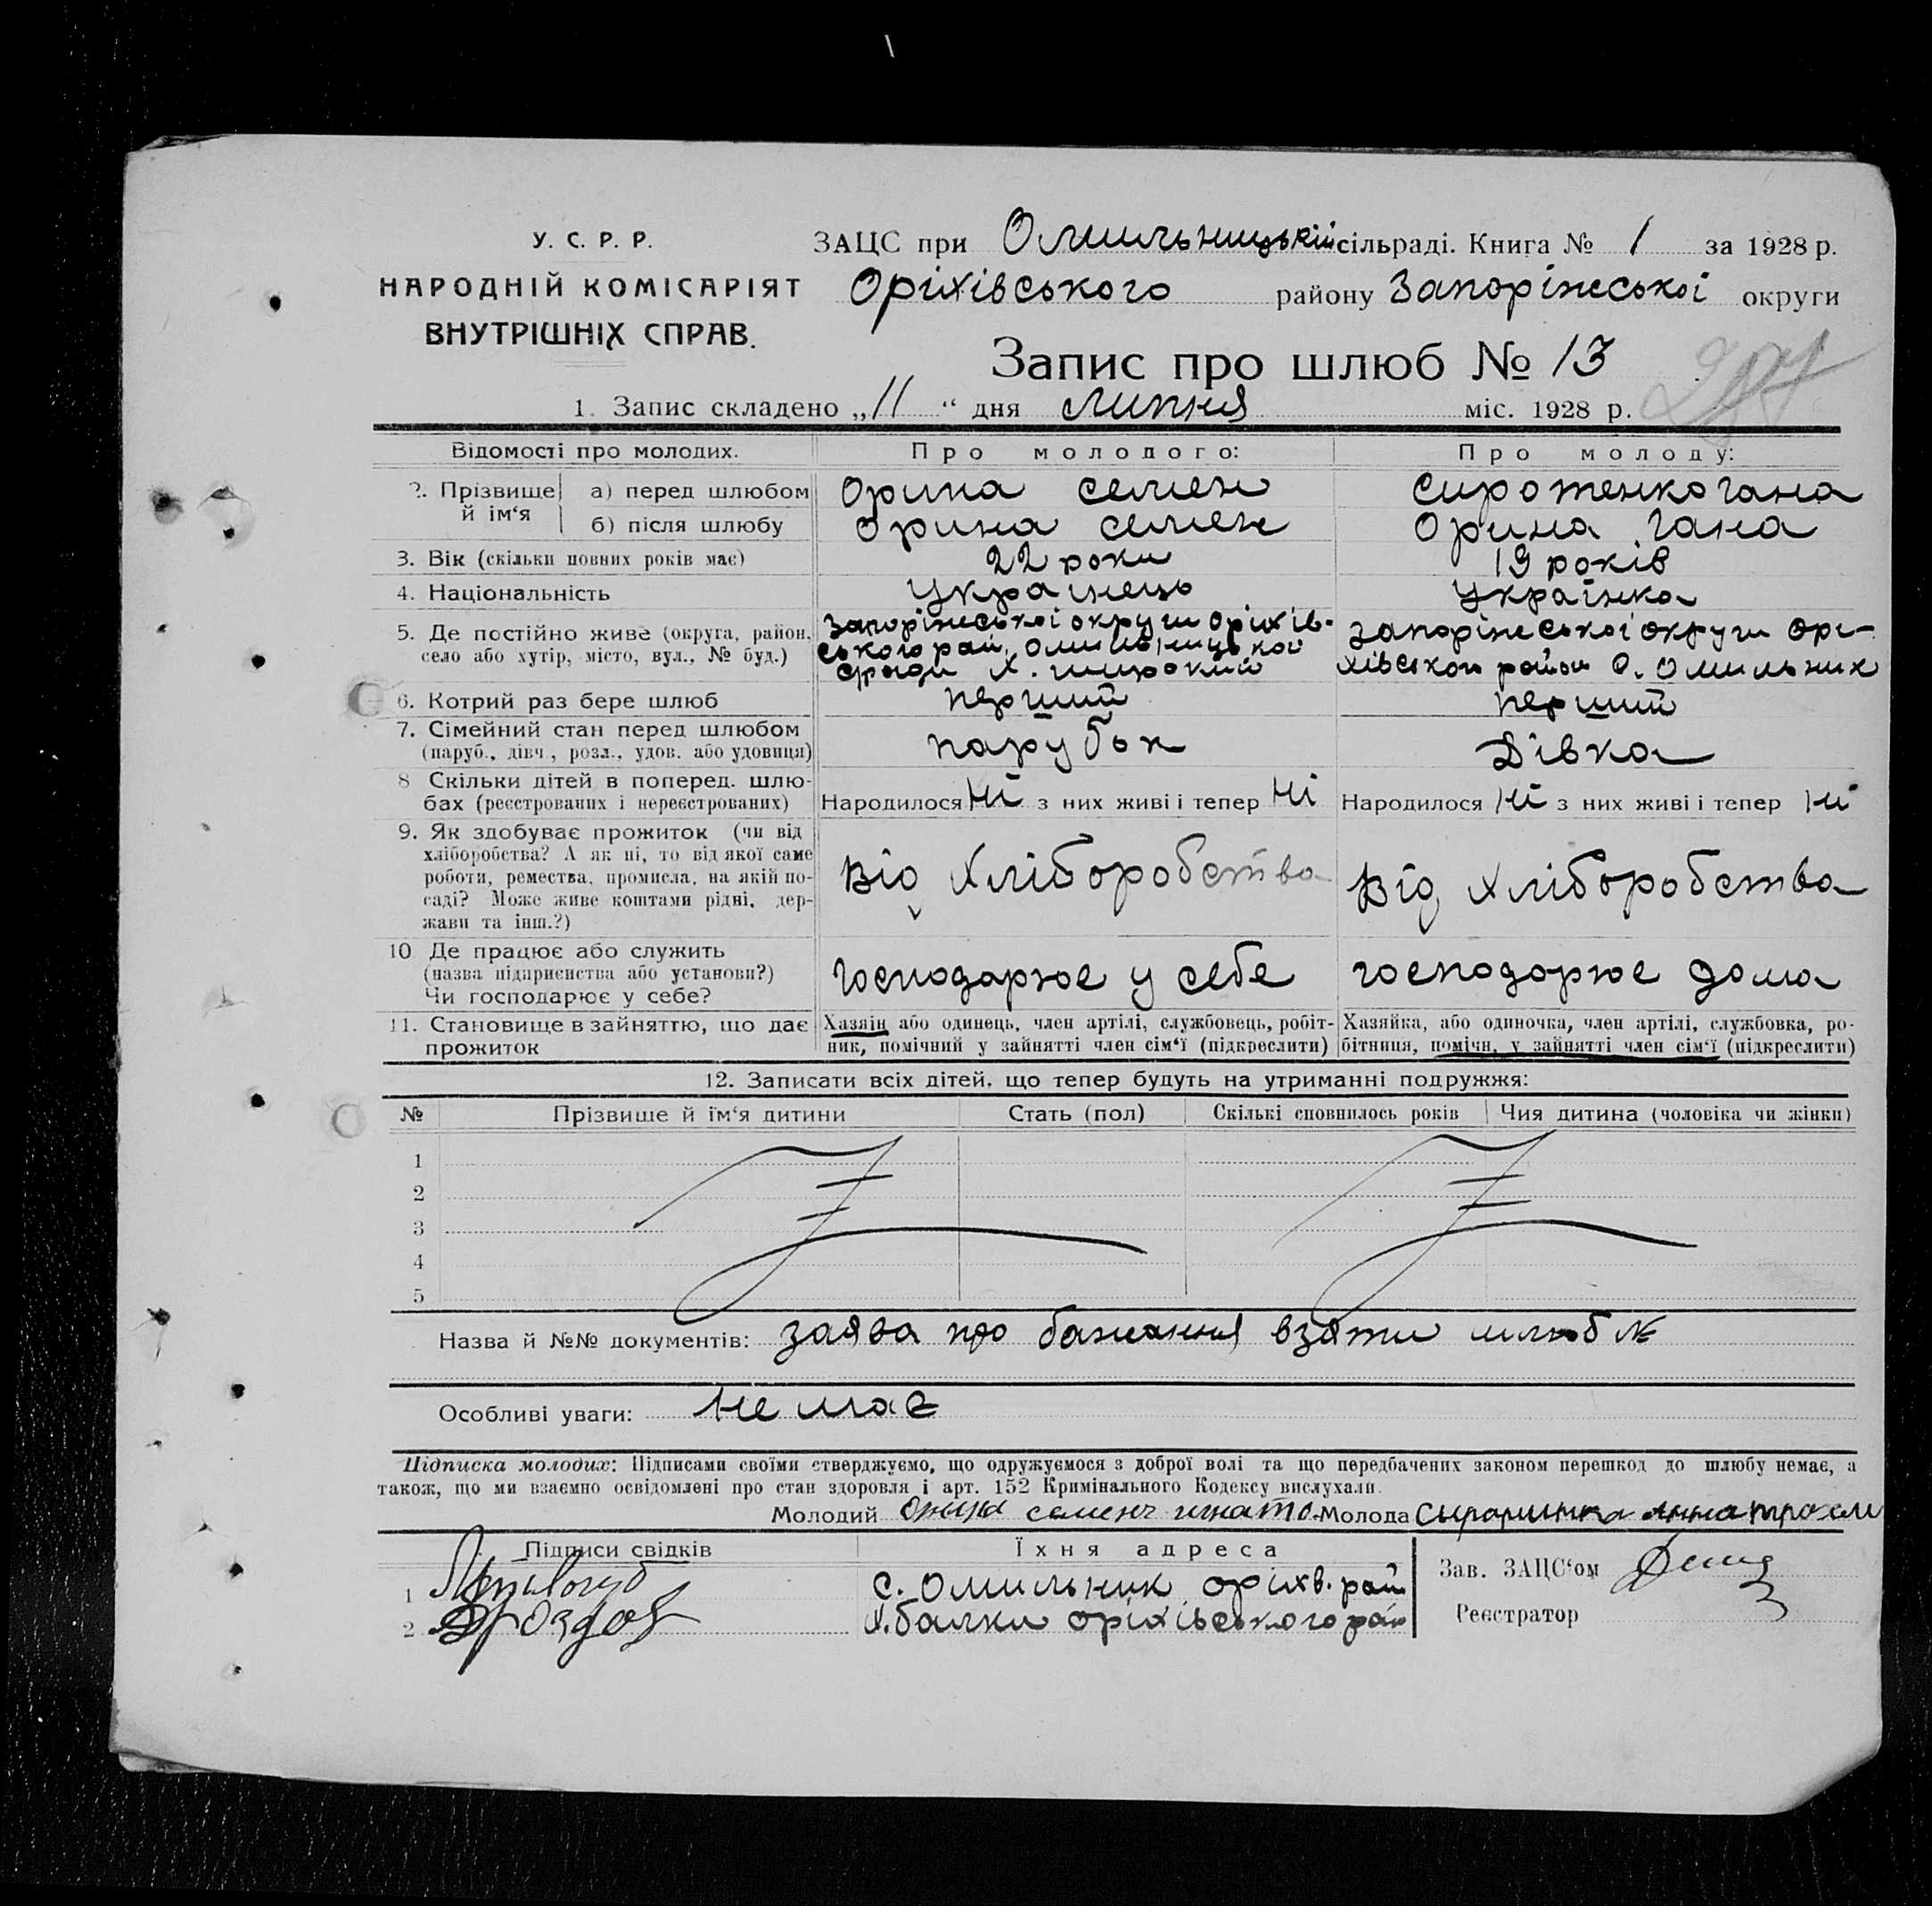 У. С. Р. Р.
НАРОДНІЙ КОМІСАРІЯТ
ВНУТРІШНІХ СПРАВ.
ЗАЦС при Омильницькій сільраді. Книга № 1 за 1928 р.
Оріхівського району Запоріжської округи
Запис про шлюб № 13
1. Запис складено „11“ дня липня міс. 1928 р.
Відомості про молодих. Про молодого: Про молоду:
2. Прізвище й ім‘я а) перед шлюбом Орина семен сиротенко гана
б) після шлюбу Орина семен Орина гана
3. Вік (скільки повних років має) 22 роки 19 років
4. Національність Українець Українка
5. Де постійно живе (округа, район, село або хутір, місто, вул., № буд.)
Запоріжської округи Оріхів-
ського рай. Омильницької
сради Х. широкий
Запоріжської округи Орі-
хівськои район С. Омильник
6. Котрий раз бере шлюб перший перший
7. Сімейний стан перед шлюбом парубок Дівка
(паруб., дівч., розл., удов. або удовиця)
8 Скільки дітей в поперед. шлю-
бах (реєстрованих і нереєстрованих) Народилося Ні з них живі і тепер Ні Народилося Ні з них живі і тепер Ні
9. Як здобуває прожиток (чи від
хліборобства? А як ні, то від якої саме
роботи, ремества, промисла, на якій по-
саді? Може живе коштами рідні, дер-
жави та інш.?)
Від Хліборобства Від Хліборобства
10 Де працює або служить
(назва підприємства або установи?)
Чи господарює у себе?
Господарює у себе господорює дома
11. Становище в зайняттю, що дає
прожиток
Хазяін або одинець, член артілі, службовець, робіт-
ник, помічний у зайнятті член сім‘ї (підкреслити)
Хазяйка, або одиночка, член артілі, службовка, ро-
бітниця, помічн. у зайнятті член сім‘ї (підкреслити)
12. Записати всіх дітей, що тепер будуть на утриманні подружжя:
№ Прізвище й ім‘я дитини Стать (пол) Скількі сповнилось років Чия дитина (чоловіка чи жінки)
1
2
3
4
5
Назва й №№ документів: заява про бажання взяти шлюб №
Особливі уваги: не має
Підписка молодих: Підписами своїми стверджуємо, що одружуємося з доброї волі та що передбачених законом перешкод до шлюбу немає, а
також, що ми взаємно освідомлені про стан здоровля і арт. 152 Кримінального Кодексу вислухали.
Молодий Орина семенъ игнато. Молода Анна
Підписи свідків Їхня адреса
1 с. Омильник оріхв. рай
2 х. балки оріхівського рай
Зав. ЗАЦС‘ом
Реєстратор